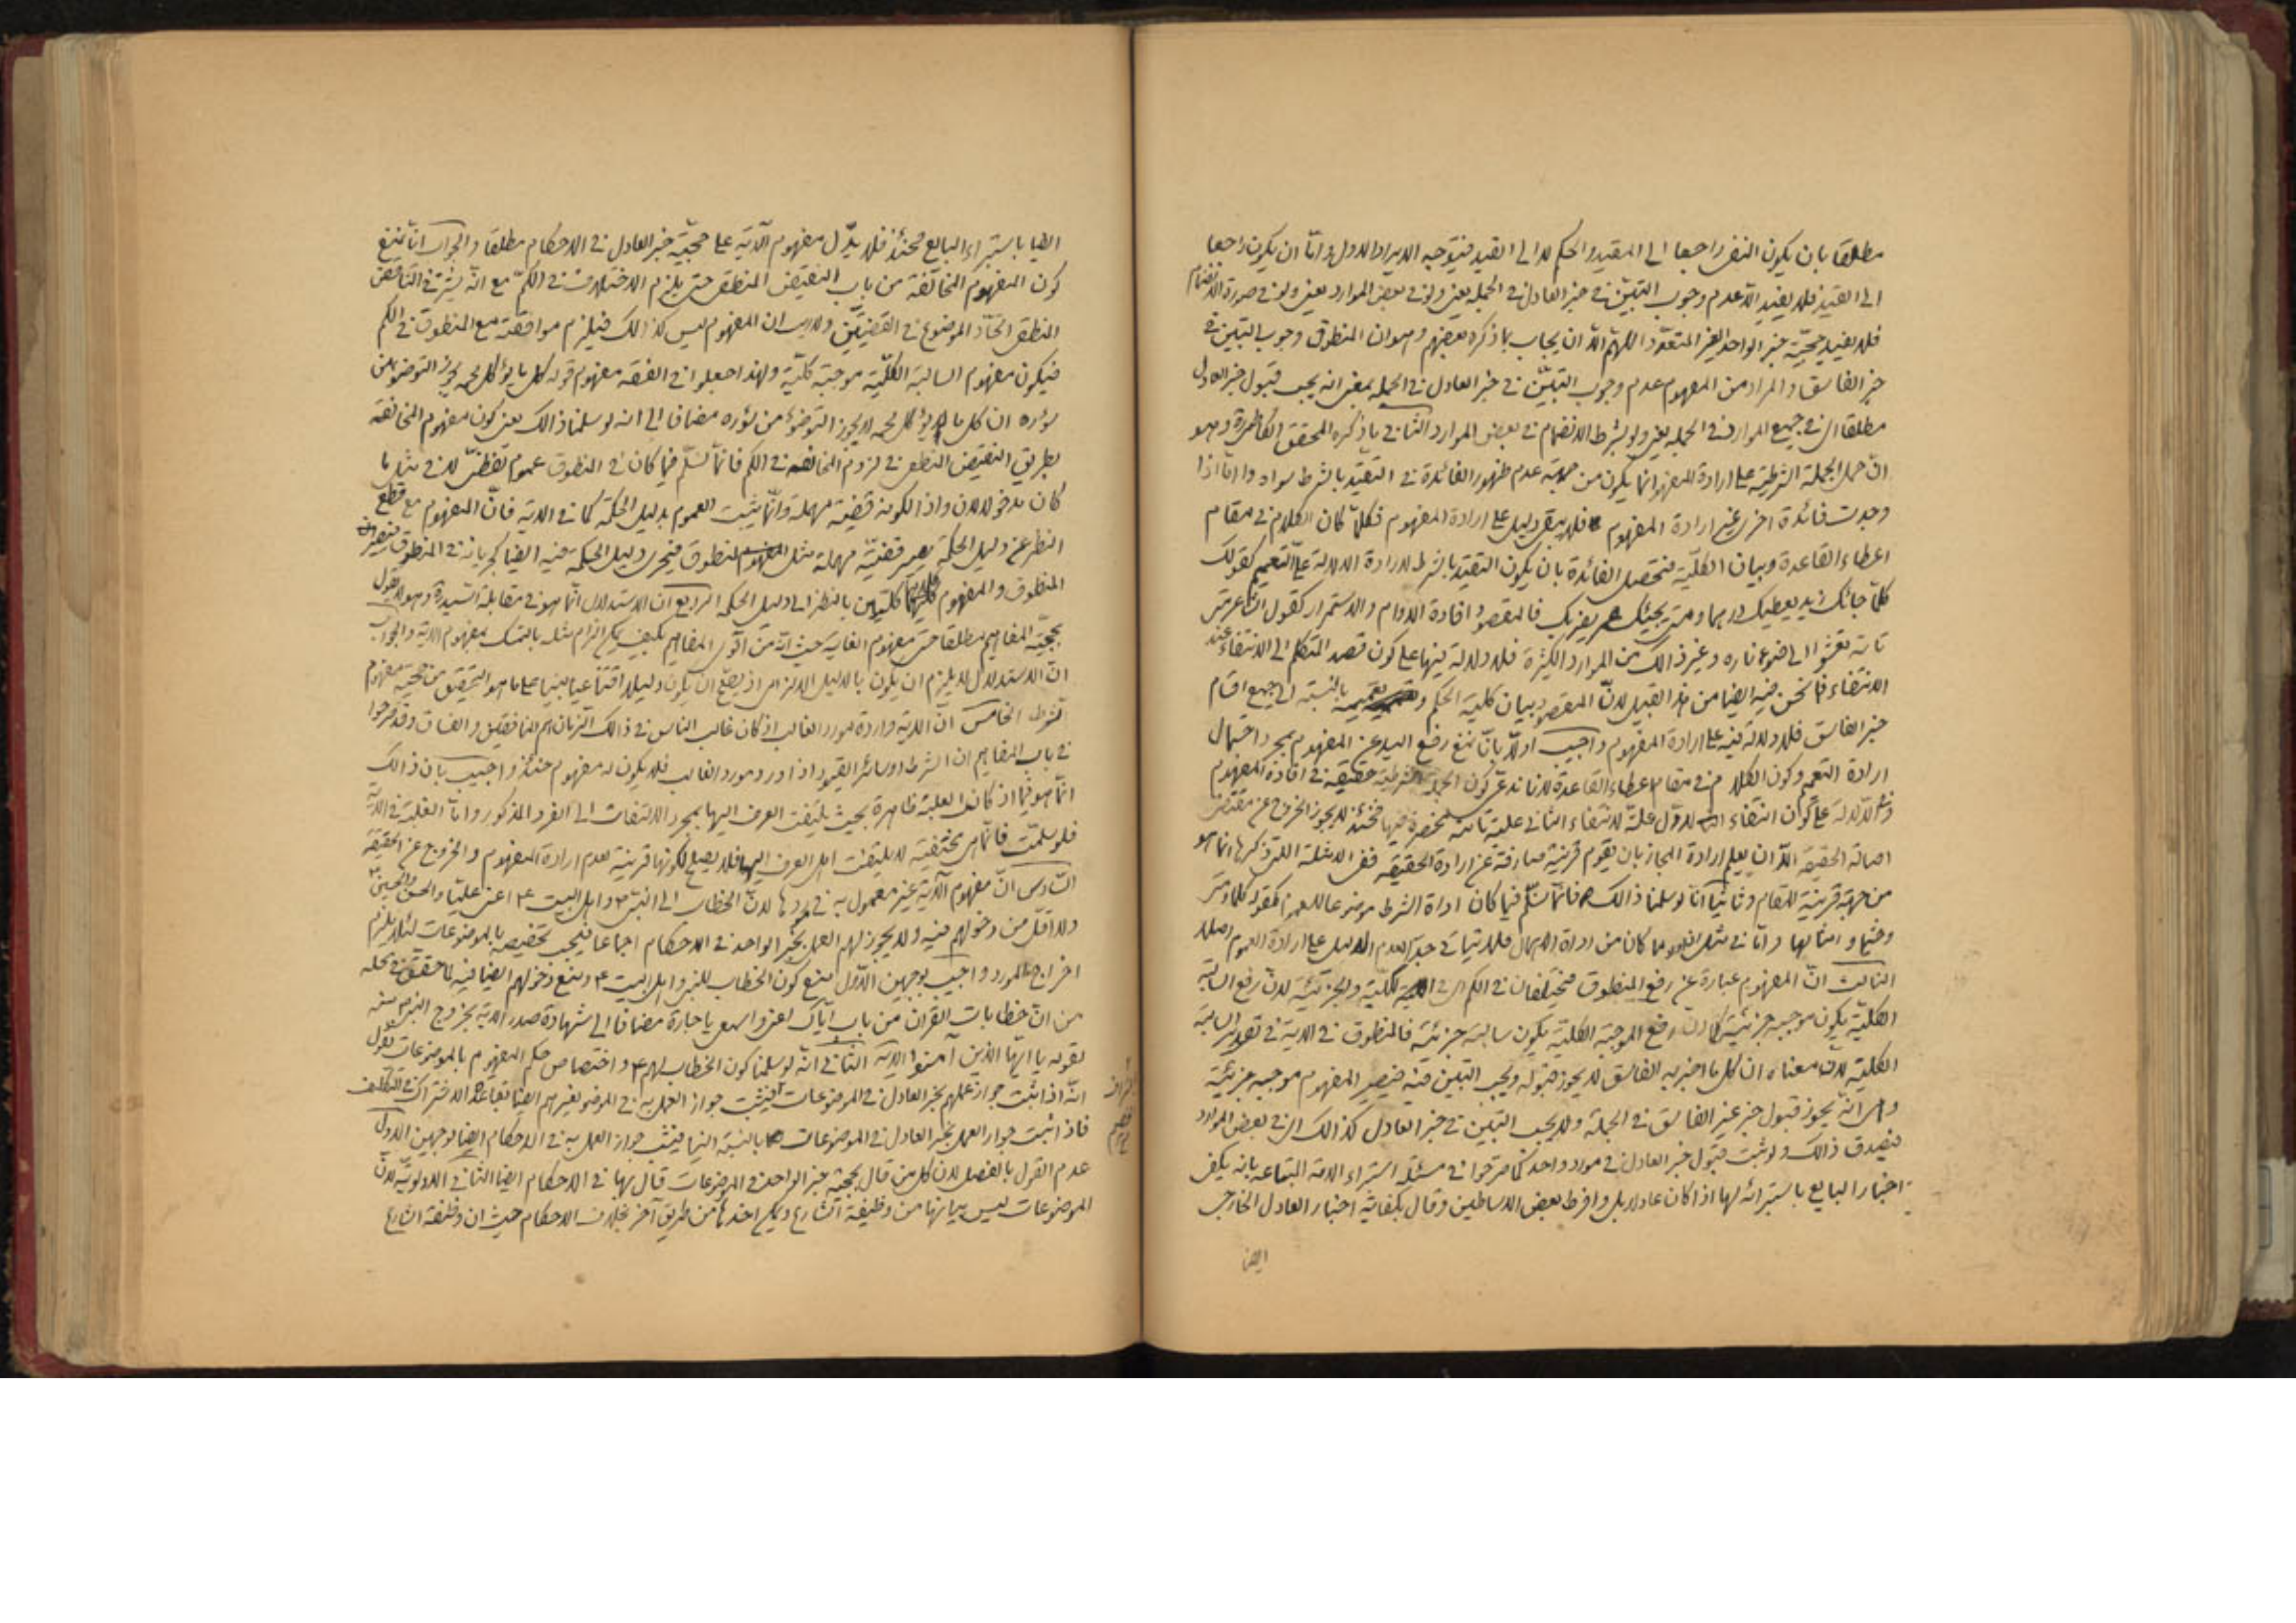 مطلقا بان يكون النفى راجعا الى المقيد والحكم لا الى القيد فيتوجه الايراد الاول واما ان يكون راجعا
الى القيد فلا يفيد الا عدم وجوب التبين فى خبر العادل فى الجملة يعنى ولو فى بعض الموارد يعنى ولو فى صورة الانضمام
فلا يفيد حجية خبر الواحد الغير المتعدد اللهم الا ان يجاب بما ذكره بعضهم وهو ان المنطوق وجوب التبين فى
خبر الفاسق والمراد من المفهوم عدم وجوب التبين فى خبر العادل فى الجملة بمعنى انه يجب قبول خبر العادل
مطلقا اى فى جميع الموارد فى الجملة يعنى ولو بشرط الانضمام فى بعض الموارد الثانى ما ذكره المحقق الكاظمى وهو
ان حمل الجملة الشرطية على ارادة المفهوم انما يكون من جهة عدم ظهور الفائدة فى التقييد بالشرط سواه واما اذا
وجدت فائدة اخرى غير ارادة المفهوم فلا يبقى دليل على ارادة المفهوم فكلما كان الكلام فى مقام
اعطاء القاعدة وبيان الكلية فتحصل الفائدة بان يكون التقييد بالشرط لارادة الدلالة على التعميم كقولك
كلما جائك زيد يعطيك درهما ومتى يجيئك عمرو يضربك فالمقصود افادة الدوام والاستمرار كقول الشاعر متى
تاته تعشو الى ضوء ناره وغير ذالك من الموارد الكثيرة فلا دلالة فيها على كون قصد المتكلم الى الانتفاء عند
الانتفاء فما نحن فيه ايضا من هذا القبيل لان المقصود بيان كلية الحكم وتعميمه بالنسبة الى جميع اقسام
خبر الفاسق فلا دلالة فيه على ارادة المفهوم واجيب اولا بانا نمنع رفع اليد عن المفهوم بمجرد احتمال
ارادة التعميم وكون الكلام فى مقام اعطاء القاعدة لانا ندعى كون الجملة الشرطية حقيقة فى افادة المفهوم
والدلالة على كون انتفاء الاول علة لانتفاء الثانى علية تامة منحصرة فيها فحينئذ لا يجوز الخروج عن مقتضى
اصالة الحقيقة الا ان يعلم ارادة المجاز بان يقوم قرينة صارفة عن ارادة الحقيقة ففى الامثلة التى ذكرها انما هو
من جهة قرينة المقام وثانيا انا لو سلمنا ذالك فانما نسلم فيما كان اداة الشرط موضوعا للعموم كقوله كلما ومتى
وحيثما وامثالها واما فى مثل ان ولو مما كان من اداة الاهمال فلا يتاتى جدا لعدم الدليل على ارادة العموم اصلا
الثالث ان المفهوم عبارة عن رفع المنطوق فيختلفان فى الكم اى الكلية والجزئية لان رفع السالبة
الكلية يكون موجبه جزئية كما ان رفع الموجبة الكلية يكون سالبة جزئية فالمنطوق فى الاية فى تقدير السالبة
الكلية لان معناه ان كل ما اخبر به الفاسق لا يجوز قبوله ويجب التبين فيه فيصير المفهوم موجبه جزئية
وهى انه يجوز قبول خبر غير الفاسق فى الجملة ولا يجب التبين فى خبر العادل كذالك اى فى بعض الموارد
فيصدق ذالك ولو ثبت قبول خبر العادل فى مورد واحد كما صرحوا فى مسئلة استبراء الامة المبتاعه بانه يكفى
اخبار البايع باستبرائه لها اذا كان عادلا بل وافرط بعض الاساطين وقال بكفاية اخبار العادل الخارجى
ايضا
ايضا باستبراء البايع فحينئذ فلا يدل مفهوم الاية على حجية خبر العادل فى الاحكام مطلقا والجواب انا نمنع
كون المفهوم المخالفة من باب النقيض المنطقى حتى يلزم الاختلاف فى الكم مع انه يشترط فى التناقض
المنطقى اتحاد الموضوع فى القضيتين ولا ريب ان المفهوم ليس كذالك فيلزم موافقته مع المنطوق فى الكم
فيكون مفهوم السالبة الكلية موجبة كلية ولهذا جعلوا فى الفقه مفهوم قوله كل ما يؤكل لحمه يجوز التوضوء من
سؤره ان كل ما لا يؤكل لحمه لا يجوز التوضوء من سؤره مضافا الى انه لو سلمنا ذالك يعنى كون مفهوم المخالفة
بطريق النقيض المنطقى فى لزوم المخالفه فى الكم فانما نسلم فيما كان فى المنطوق عموم لفظى لا فى مثل ما
كان مدخولا لان واذا لكونه قضية مهملة وانما يثبت العموم بدليل الحكمة كما فى الاية فان المفهوم مع قطع
النظر عن دليل الحكمة يصير قضية مهملة مثل المنطوق فيجرى دليل الحكمة فيه ايضا كجريانه فى المنطوق فيصيران
المنطوق والمفهوم كلاهما كليتين بالنظر الى دليل الحكمة الرابع ان الاستدلال انما هو فى مقابلة السيد وهو لا يقول
بحجية المفاهيم مطلقا حتى مفهوم الغاية حيث انه من اقوى المفاهيم فكيف يمكن الزام مثله بالتمسك بمفهوم الاية والجواب
ان الاستدلال لا يلزم ان يكون بالدليل الالزامى اذ يصح ان يكون دليلا اقناعيا مبنيا على ما هو التحقيق من حجية مفهوم
الشرط الخامس ان الاية واردة مورد الغالب اذ كان غالب الناس فى ذالك الزمان هم المنافقين والفساق وقد صرحوا
فى باب المفاهيم ان الشرط او سائر القيود اذا ورد مورد الغالب فلا يكون له مفهوم حينئذ واجيب بان ذالك
انما هو فيما اذا كانت الغلبة ظاهرة بحيث يلتفت العرف اليها بمجرد الالتفات الى الفرد المذكور واما الغلبة فى الاية
فلو سلمت فانما هى مختفية لا يلتفت اهل العرف اليها فلا يصلح لكونها قرينة لعدم ارادة المفهوم والخروج عن الحقيقة
السادس ان مفهوم الاية غير معمول به فى موردها لان الخطاب الى النبى ص واهل البيت ع اعنى عليا والحسن والحسين
ولا اقل من دخولهم فيه ولا يجوز لهم العمل بخبر الواحد فى الاحكام اجماعا فيجب تخصيصه بالموضوعات لئلا يلزم
اخراج المورد واجيب بوجهين الاول نمنع كون الخطاب للنبى واهل البيت ع ونمنع دخولهم ايضا فيه لما حقق فى محله
من ان خطابات القران من باب اياك اعنى واسمعى يا جارة مضافا الى شهادة صدر الاية بخروج النبى ص عنه
بقوله يا ايها الذين آمنوا الاية الثانى انه لو سلمنا كون الخطاب لهم ع واختصاص حكم المفهوم بالموضوعات نقول
انه اذا ثبت جواز عملهم بخبر العادل فى الموضوعات فيثبت جواز العمل به فى الموضوع لغيرهم ايضا بقاعدة الاشتراك فى التكليف
فاذا ثبت جواز العمل بخبر العادل فى الموضوعات بالنسبة الينا فيثبت جواز العمل به فى الاحكام ايضا بوجهين الاول
عدم القول بالفصل لان كل من قال بحجية خبر الواحد فى الموضوعات قال بها فى الاحكام ايضا الثانى الاولوية لان
الموضوعات ليس بيانها من وظيفة الشارع ويمكن اخذها من طريق آخر بخلاف الاحكام حيث ان وظيفة الشارع